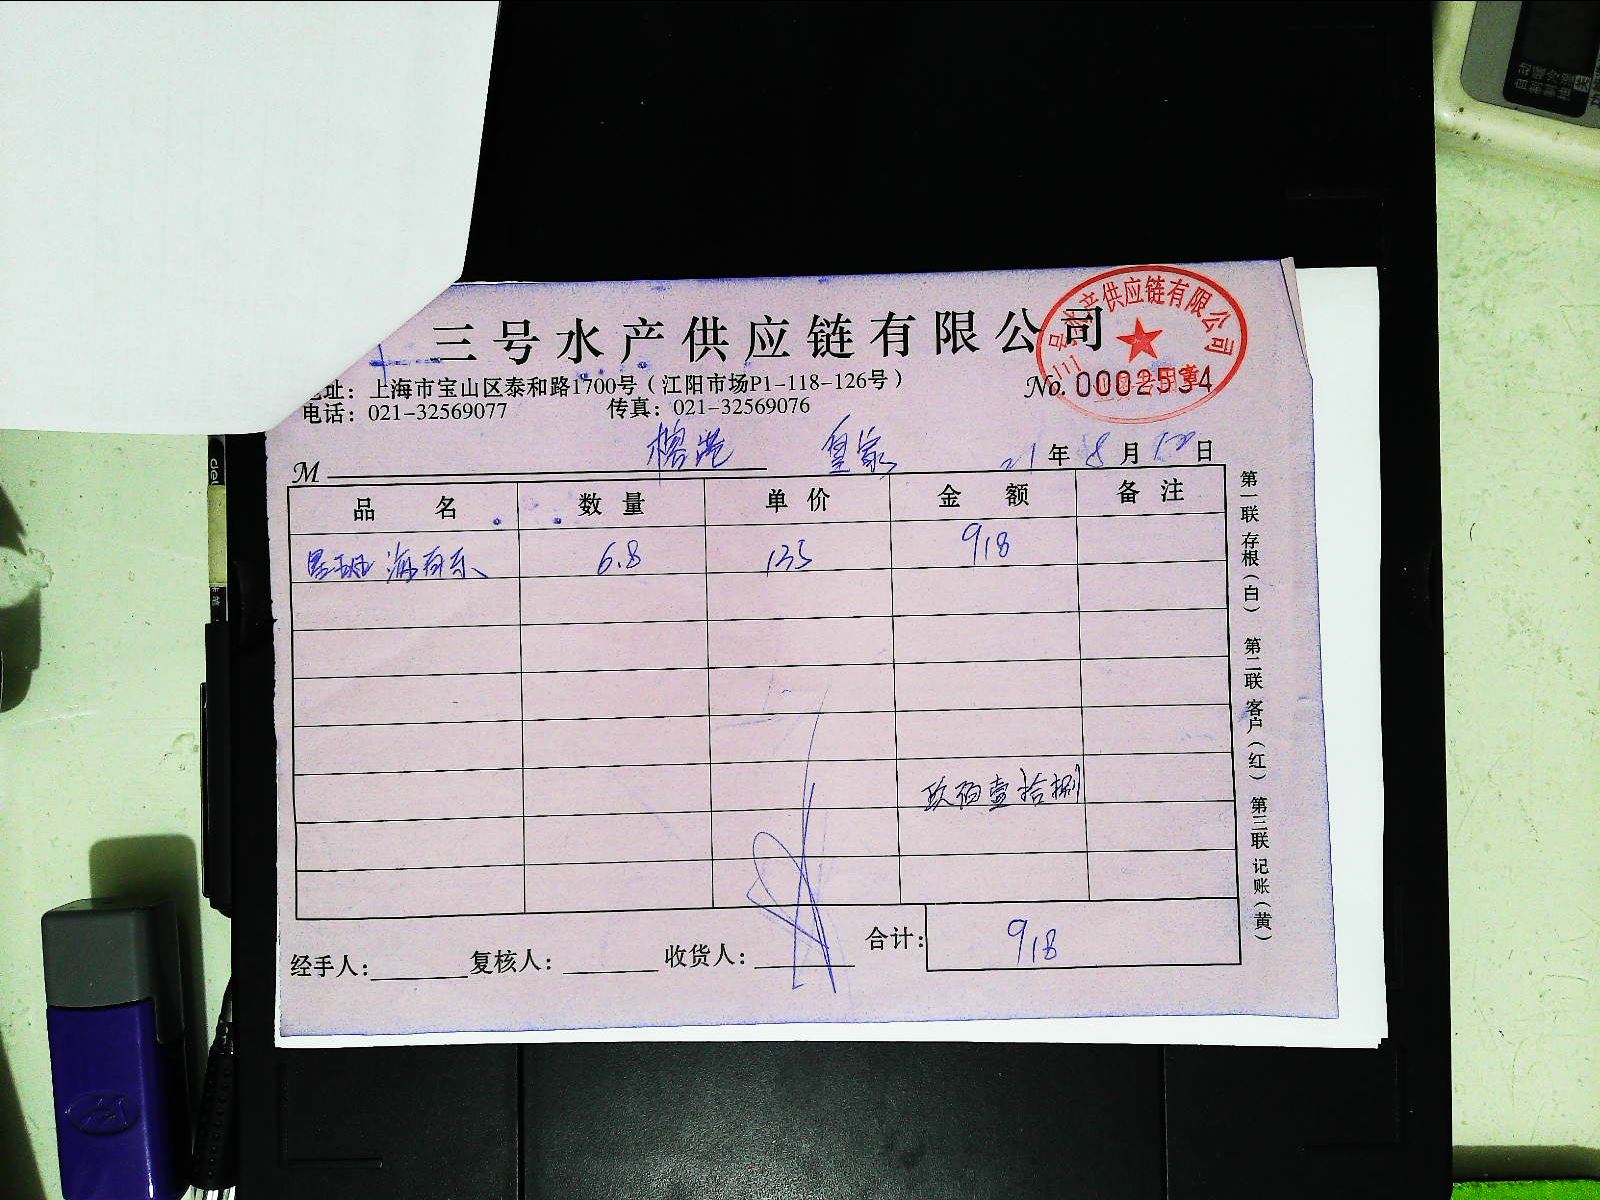 三号水产供应链有限公司
号水产供应链有限公司
址：上海市宝山区泰和路1700号（江阳市场P1-118-126号）
No. 0002534
电话：021-32569077 传真：021-32569076
M 榕港 皇家 21年8月12日
品名 数量 单价 金额 备注
海 6.8 135 918
玖佰壹拾捌
合计：918
经手人： 复核人： 收货人：
第一联 存根（白） 第二联 客户（红） 第三联 记账（黄）
deli